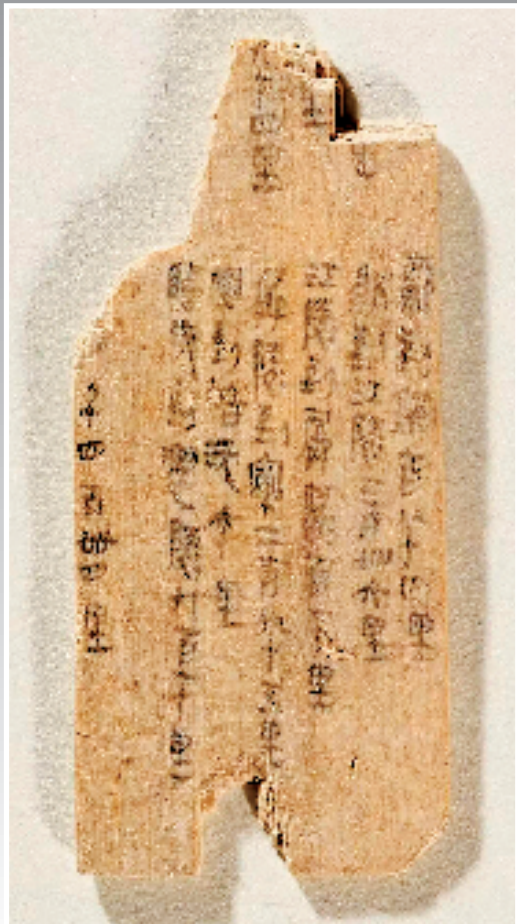 鄢到銷百八十四里
銷到江陵二百卌六里
江陵到孱陵百一十里
孱陵到索二百九十五里
索到臨沅六十里
臨沅到遷陵九百一十里
千四百卌里